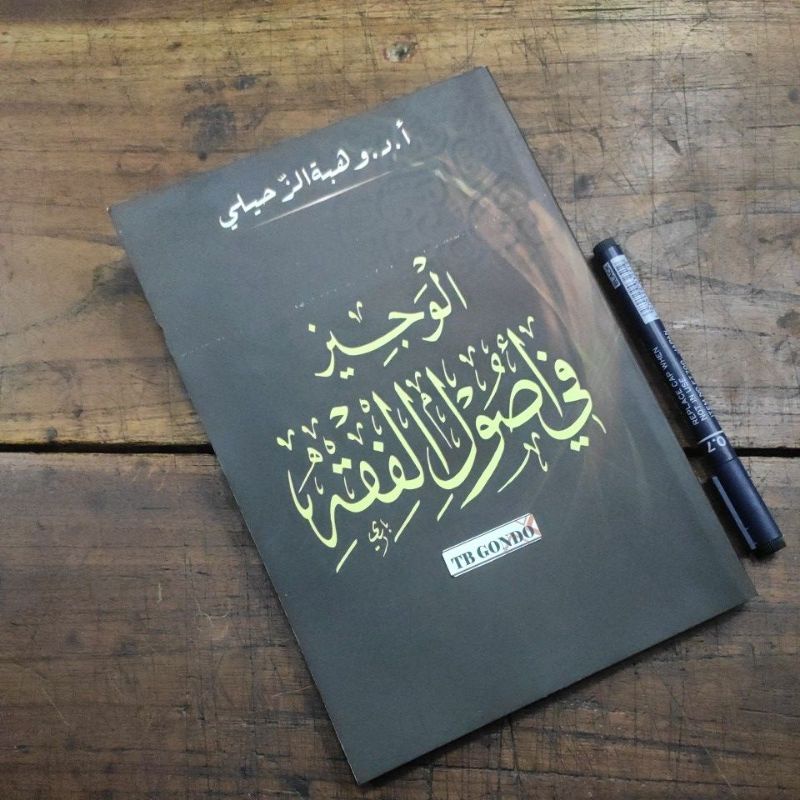 أ.د. وهبة الزّحيلي
الوَجِيز
في أُصُولِ الفِقْهِ
TB GONDO
REPLACE CAP WHEN
NOT IN USE
0.7